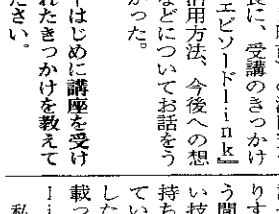 長に、受講のきっかけ
エピソードーink』
活用方法、今後への想
などについてお話をう
かった。
ーはじめに講座を受け
れたきっかけを教えて
ださい。
りす
う開
い技
持ち
てい
した
載っ
ー i
私